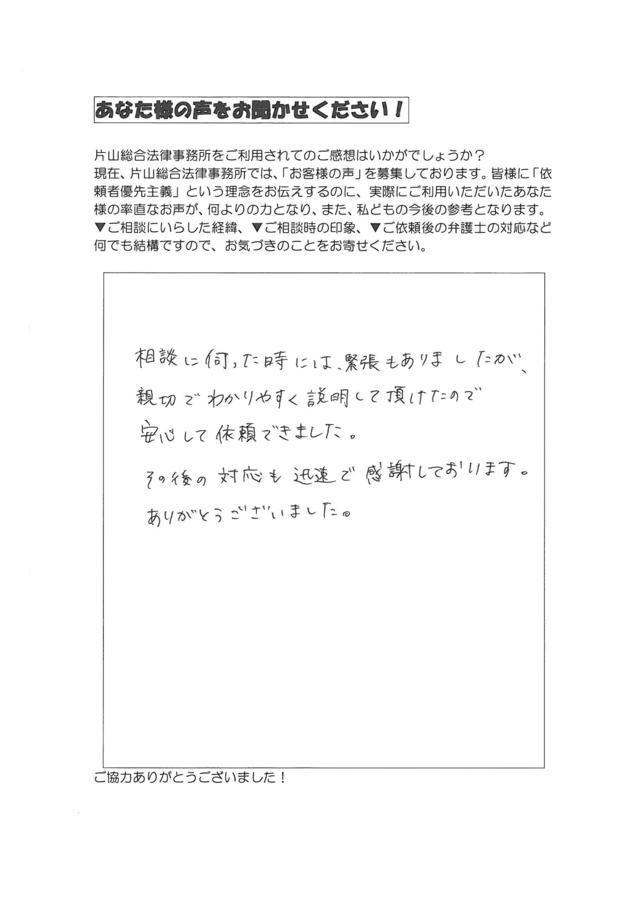 あなた様の声をお聞かせください！
片山総合法律事務所をご利用されてのご感想はいかがでしょうか？
現在、片山総合法律事務所では、「お客様の声」を募集しております。皆様に「依
頼者優先主義」という理念をお伝えするのに、実際にご利用いただいたあなた
様の率直なお声が、何よりの力となり、また、私どもの今後の参考となります。
▼ご相談にいらした経緯、▼ご相談時の印象、▼ご依頼後の弁護士の対応など
何でも結構ですので、お気づきのことをお寄せください。
相談に伺った時には、緊張もありましたが、
親切でわかりやすく説明して頂けたので
安心して依頼できました。
その後の対応も迅速で感謝しております。
ありがとうございました。
ご協力ありがとうございました！